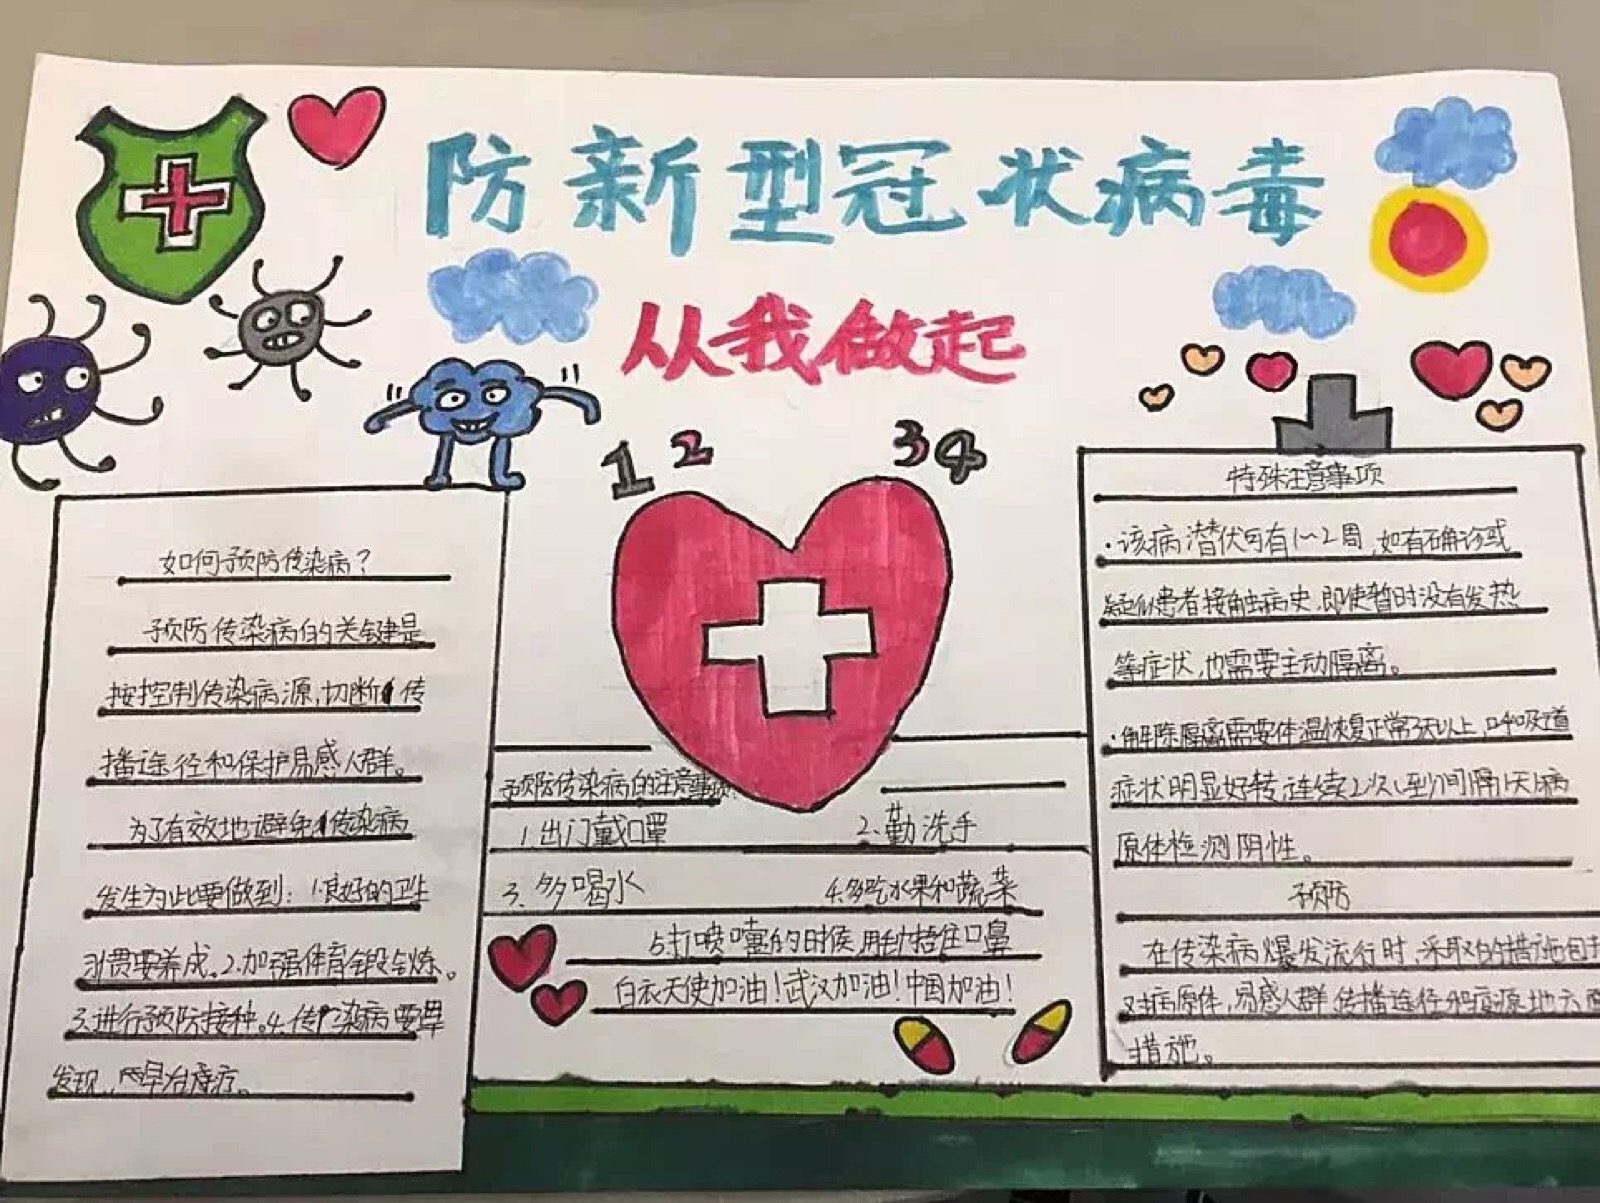 防新型冠状病毒
从我做起
1 2 3 4
如何预防传染病?
预防传染病的关键是
按控制传染病源,切断传
播途径和保护易感人群。
为了有效地避免传染病
发生为此要做到:1.良好的卫生
习惯要养成。2.加强体育锻炼。
3.进行预防接种。4.传染病要早
发现,早治疗。
预防传染病的注意事项
1.出门戴口罩
2.勤洗手
3.多喝水
4.多吃水果和蔬菜
5.打喷嚏的时候用手捂住口鼻
白衣天使加油!武汉加油!中国加油!
特殊注意事项
·该病潜伏可有1~2周,如有确诊或
疑似患者接触病史,即使暂时没有发热
等症状,也需要主动隔离。
·解除隔离需要体温恢复正常3天以上,呼吸道
症状明显好转,连续2次(至少间隔1天)病
原体检测阴性。
预防
在传染病爆发流行时,采取的措施包括
对病原体,易感人群,传播途径和疫源地六要
措施。